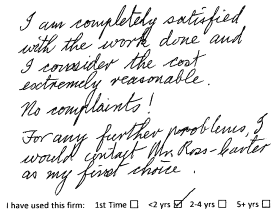 I am completely satisfied
with the work done and
I consider the cost
extremely reasonable.
No complaints!
For any further problems, I
would contact Mr. Ross-barter
as my first choice.
I have used this firm: 1st Time ☐ <2 yrs ☑ 2-4 yrs ☐ 5+ yrs ☐